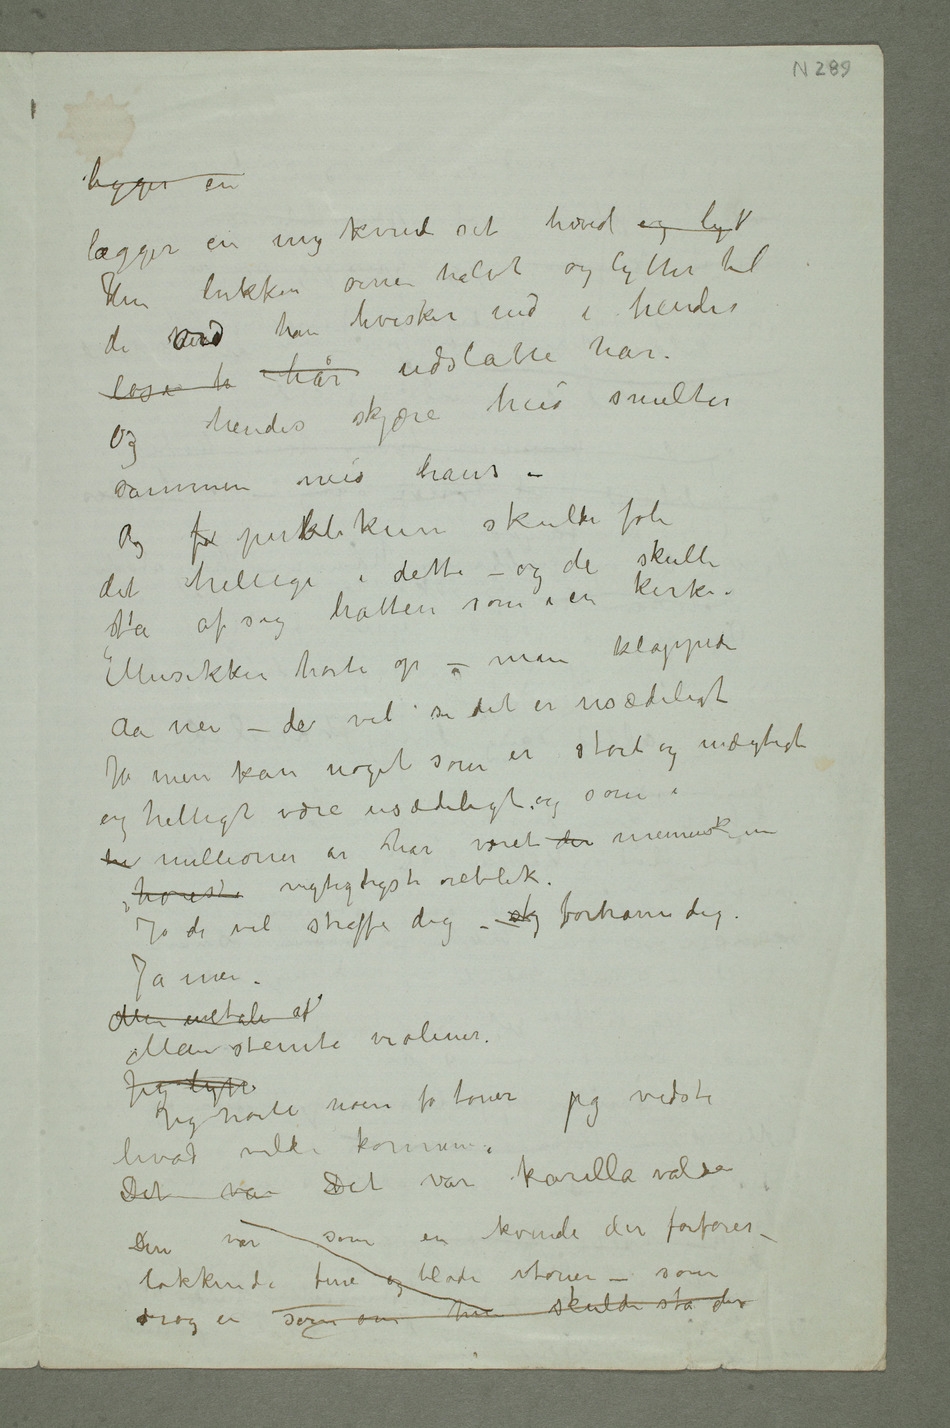 N 289
ligger en
lægger en ung kvind sit hoved og lyt
Hun lukker øinen halvt og lytter til
de ord han hvisker ind i hendes
løse h hår udslåtte hår.
Og hendes skjære hud smelter
sammen med hans –
Og fo publikum skulde føle
det hellige i dette – og de skulle
ta af seg hatten som i en kirke.
Musikken hørte op – man klappede
Aa nei – de vil se det er usædeligt
Ja men kan noget som er stort og mægtigt
og helligt være usædeligt og som i
millioner år har været der mennesken
høieste vigtigtigste øieblik.
Jo de vil straffe dig – og forhåne dig.
Ja men.
Man stemte violiner.
Jeg lytt
Jeg hørte noen få toner jeg vidste
hvad vilde komme.
Det va Det var Karilla valse
Den var som en kvinde der forfører –
lokkende fine og bløde toner – som
drog en som om hun skulde stå der